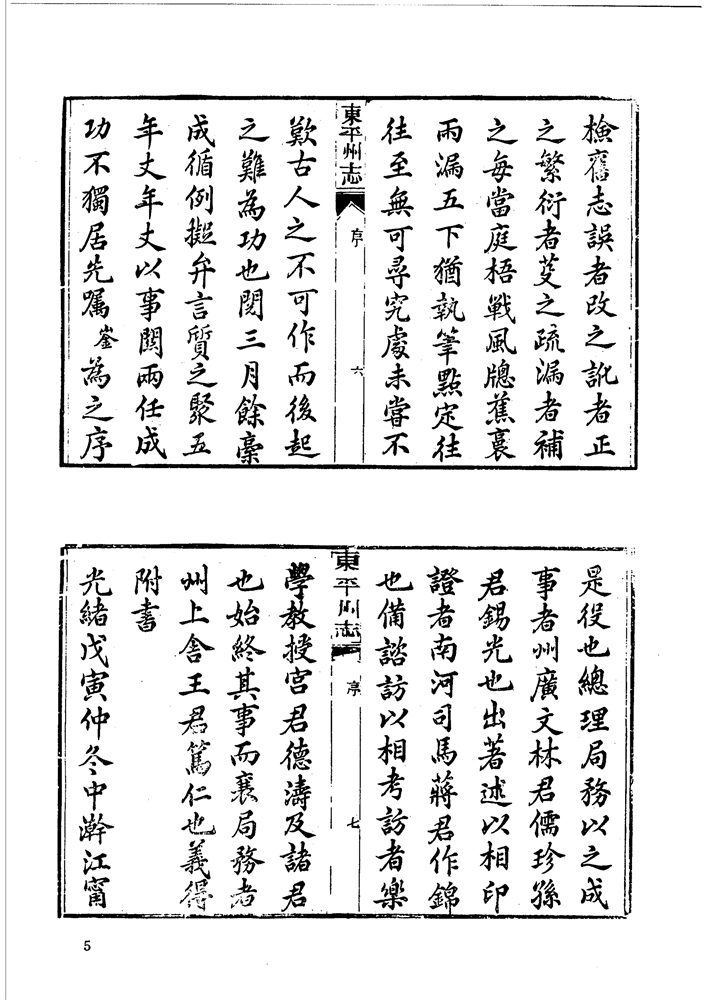 檢舊志誤者改之訛者正
之繁衍者芟之疏漏者補
之每當庭梧戰風牕蕉裹
雨漏五下猶執筆點定往
往至無可尋究處未嘗不
東平州志
序
六
歎古人之不可作而後起
之難為功也閱三月餘稾
成循例擬弁言質之聚五
年丈年丈以事關兩任成
功不獨居先囑崟為之序
是役也總理局務以之成
事者州廣文林君儒珍孫
君錫光也出著述以相印
證者南河司馬蔣君作錦
也備諮訪以相考訪者樂
東平州志
序
七
學教授宮君德濤及諸君
也始終其事而襄局務者
州上舍王君篤仁也義得
附書
光緒戊寅仲冬中澣江甯
5